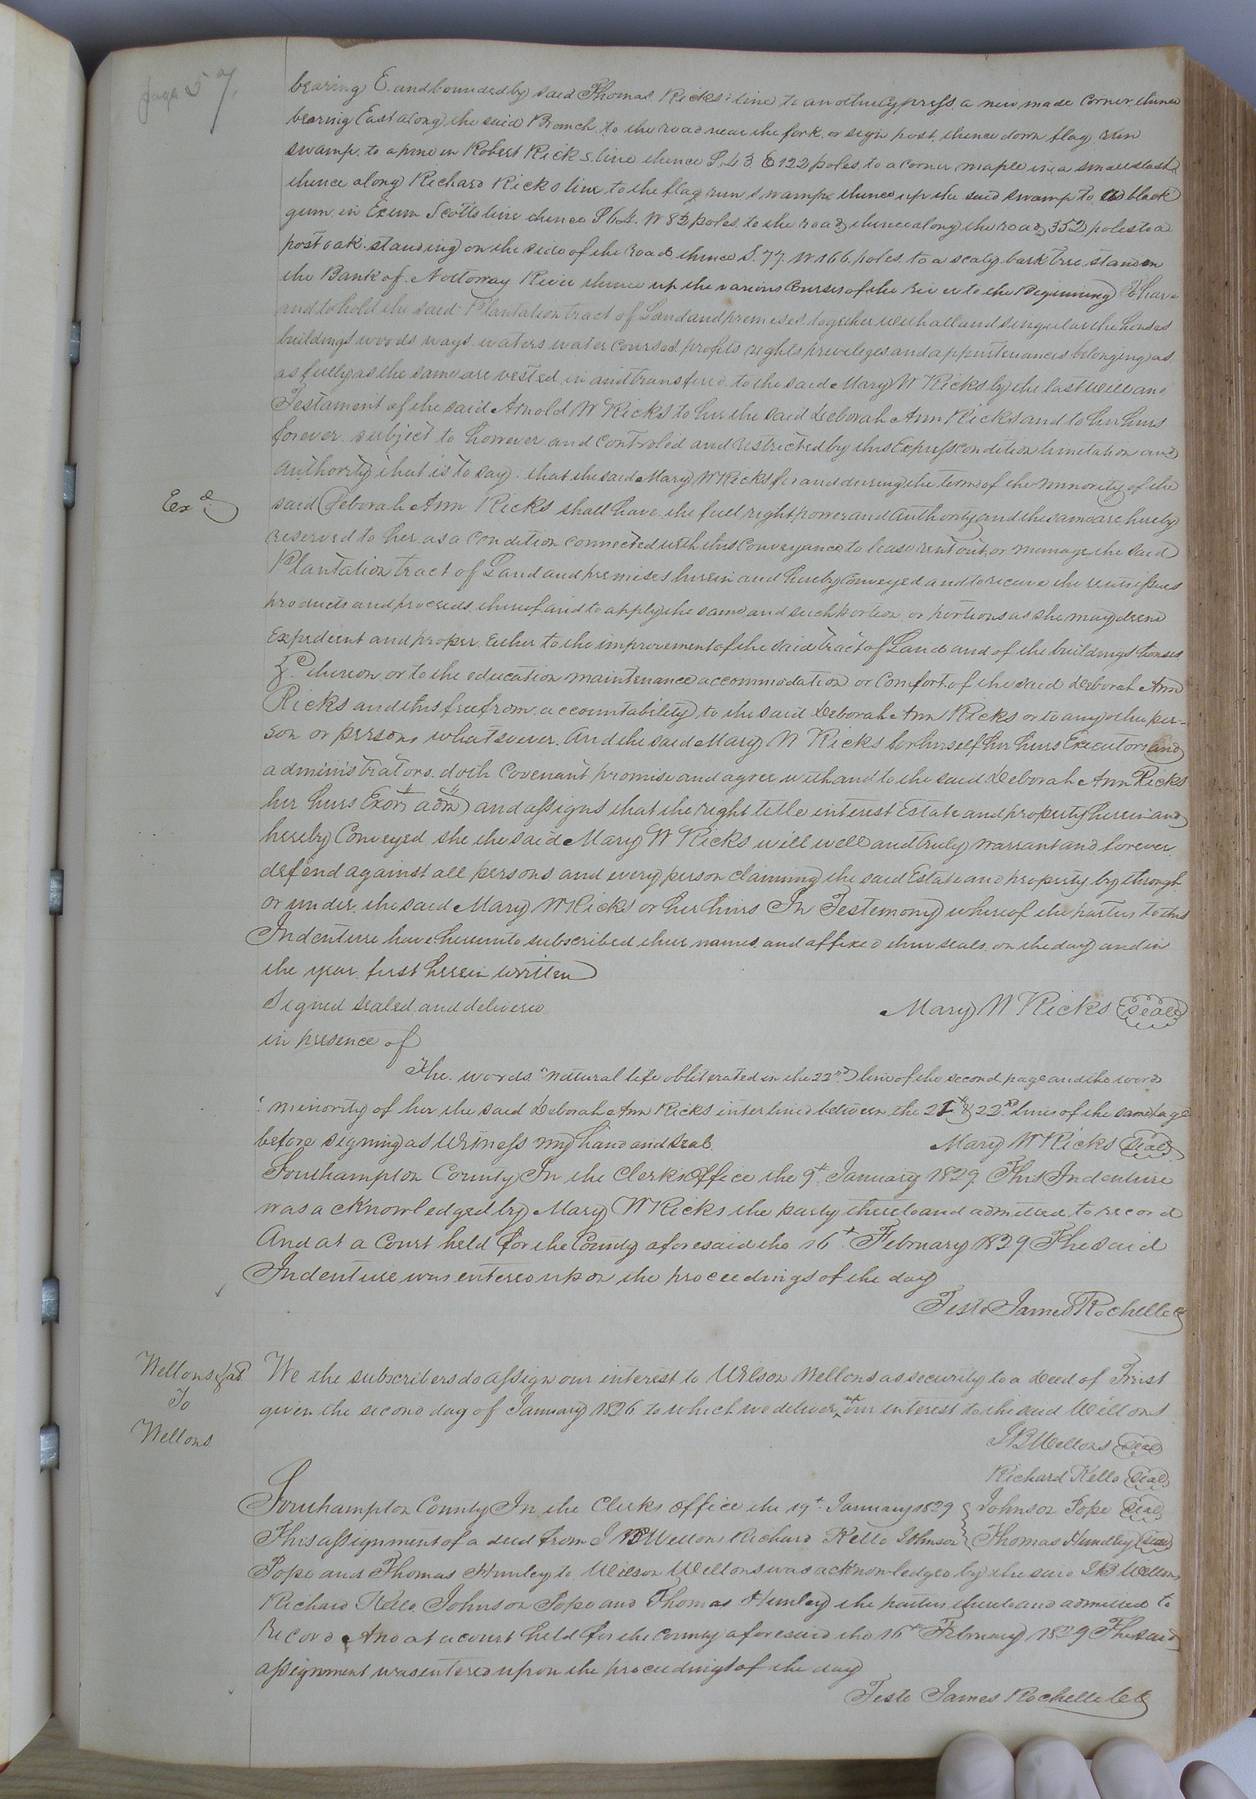 page 57
bearing E. and bounded by said Thomas Ricks' line to another cypress a new made corner thence
bearing East along the said Branch to the road near the fork or sign post, thence down flag run
swamp to a pine in Robert Ricks line thence S. 43 E 122 poles to a corner maple in a small slash
thence along Richard Ricks line to the flag run swamp thence up the said swamp to a black
gum in Exum Scotts line thence S 64 W 82 poles to the road, thence along the road, 352 poles to a
post oak standing on the side of the road thence S. 77 W 166 poles to a scaly bark tree standin
the Bank of Nottoway River thence up the various Courses of the River to the Beginning To have
and to hold the said Plantation tract of Land and premises together with all and singular the houses
buildings woods ways waters water courses profits rights privileges and appurtenances belonging as
as fully as the same are vested in and transfered to the said Mary W Ricks by the last Will and
Testament of the said Arnold W Ricks to her the said Deborah Ann Ricks and to her heirs
forever subject to however and controled and restricted by this Express condition limitation and
Authority that is to say that the said Mary W Ricks for and during the term of the minority of the
Exd.
said Deborah Ann Ricks shall have the full right power and Authority and the same are hereby
reserved to her as a condition connected with this Conveyance to lease rent out or manage the said
Plantation tract of Land and premises herein and hereby Conveyed and to receive the rents issues
products and proceeds thereof and to apply the same and such portion or portions as she may deem
Expedient and proper either to the improvement of the said tract of Land and of the buildings houses
&c thereon or to the education maintenance accommodation or Comfort of the said Deborah Ann
Ricks and this free from accountability to the said Deborah Ann Ricks or to any other per-
son or persons whatsoever. And the said Mary W Ricks for herself her heirs Executors and
administrators doth Covenant promise and agree with and to the said Deborah Ann Ricks
her heirs Exors adm and assigns that the right title interest Estate and property herein and
hereby Conveyed she the said Mary W Ricks will well and truly warrant and forever
defend against all persons and every person claiming the said Estate and property by through
or under the said Mary W Ricks or her heirs In Testimony whereof the parties to this
Indenture have hereunto subscribed their names and affixed their seals on the day and in
the year first herein written
Signed sealed and delivered Mary W Ricks Seal
in presence of
The words "natural life obliterated in the 22nd line of the second page and the word
"minority of her the said Deborah Ann Ricks interlined between the 21st & 22d lines of the same page
before signing as Witness my hand and seal Mary W Ricks Seal
Southampton County In the Clerks Office the 9th January 1829 This Indenture
was acknowledged by Mary W Ricks the party thereto and admitted to record
And at a Court held for the County aforesaid the 16th February 1829 The said
Indenture was entered upon the proceedings of the day
Teste James Rochelle C
Wellons &als
To
Wellons
We the subscribers do assign our interest to Wilson Wellons as security to a Deed of Trust
given the second day of January 1826 to which we deliver up our interest to the said Wellons
J B Wellons Seal
Richard Kello Seal
Southampton County In the Clerks office the 19th January 1829 Johnson Pope Seal
This assignment of a deed from J B Wellons Richard Kello Johnson Thomas Hundley Seal
Pope and Thomas Hunley to Wilson Wellons was acknowledged by the said J B Wellons
Richard Kello Johnson Pope and Thomas Hunley the parties thereto and admitted to
Record And at a court held for the County aforesaid the 16th February 1829 The said
assignment was entered upon the proceedings of the day
Teste James Rochelle CC